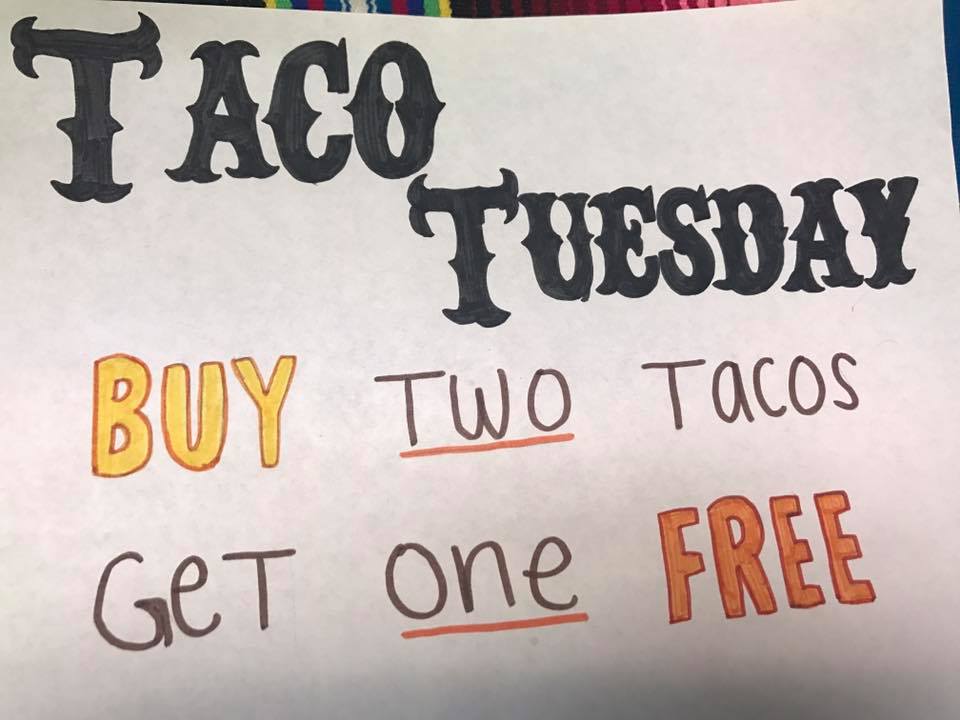 TACO
TUESDAY
BUY TWO TACOS
GeT one FREE